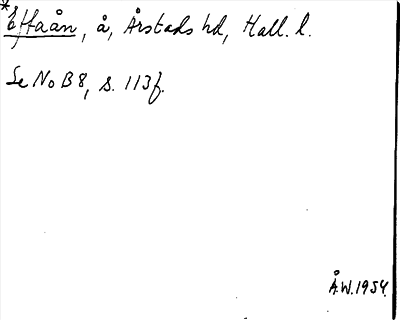 *Effaån, å, Årstads hd, Hall. l.
Se NoB 8, s. 113f.
Å.W. 1954.